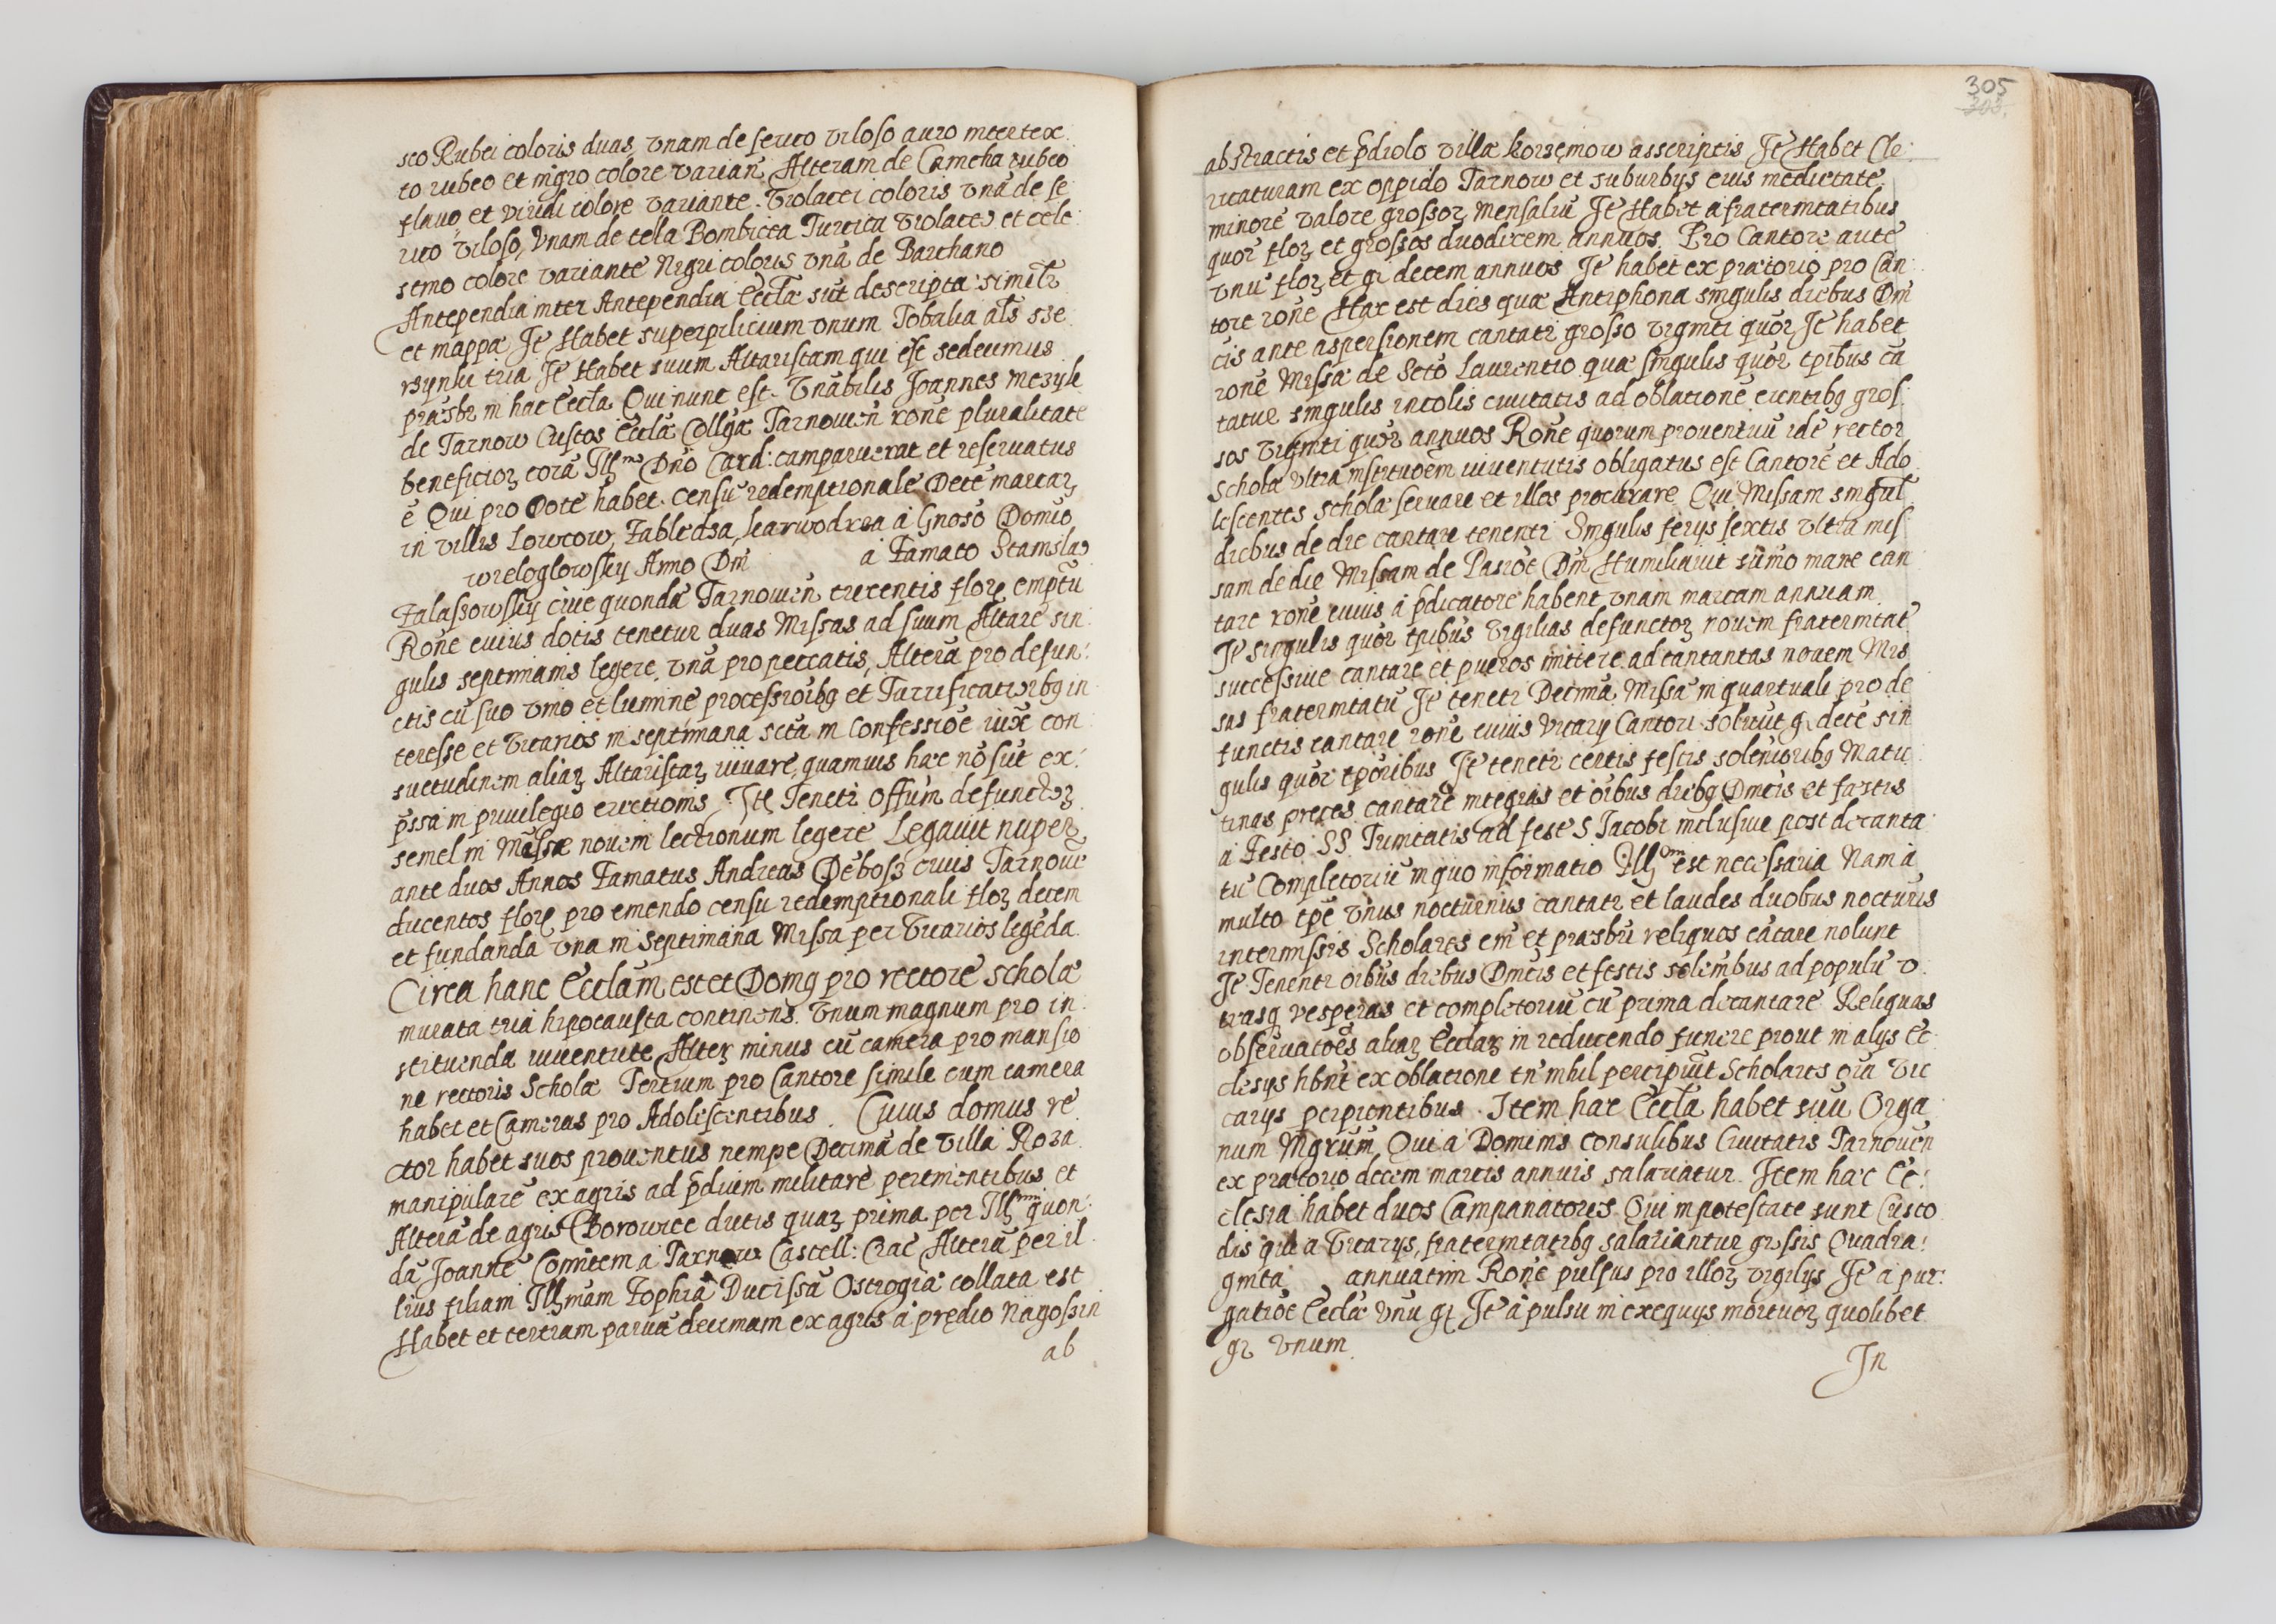 sco Rubei coloris duas, vnam de serico viloso auro intertex
to rubeo et nigro colore varian̄ Alteram de Camcha rubeo
flauo, et viridi colore variante. Violacei coloris vnā de se
rico viloso, Vnam de tela Bombicea Turcica violaceo et cele
stino colore variante Nigri coloris vnā de Barchano
Antependia inter Antependia Eccłæ sūt descripta similr
et mappæ Jt̄ Habet superpilicium vnum Tobalia als sze
rsynki tria Jt̄ Habet suum Altaristam qui est sedecimus
præsbr in hac Eccła Qui nunc est. Vnābilis Joannes Mezyk
de Tarnow Custos Eccłæ Collgæ Tarnouen̄ rone pluralitate
beneficior corā Jllmo Dn̄o Card: comparuerat et reseruatus
ē Qui pro Dote habet censū redemptionale Decē marcar
in villis Lowcow, Zabledza, karwodrza à Gnōso Domīo
wieloglowsky Anno Dn̄i à Famato Stanislao
Falassowsky ciue quondā Tarnouen̄ trecentis flor emptū
Rone cuius dotis tenetur duas Missas ad suum Altare sin
gulis septimanis legere, vnā pro peccatis, Alterā pro defun:
ctis cū suo vino et lumine processioibg et Turrificatioibg in
teresse et Vicarios in septimana sctā in Confessioe iux con
suetudinem aliar Altaristar iuuare, quamuis hæc nō sūt ex:
p̄ssa in priuilegio erectionis Jt̄e Tenetr Offūm defunctor
semel in Mēsse nouem lectionum legere Legauit nuper
ante duos Annos Famatus Andreas Debosz ciuis Tarnouē
ducentos flor pro emendo censu redemptionali flor decem
et fundanda vna in Septimana Missa per Vicarios legēda.
Circa hanc Eccłam est et Domg pro rectore scholæ
murata tria hipocausta continens. Vnum magnum pro in
stituenda iuuentute Alter minus cū camera pro mansio
ne rectoris Scholæ Tertium pro Cantore simile cum camera
habet et Cameras pro Adolescentibus. Cuius domus re
ctor habet suos prouentus nempe Decimā de villa Roza
manipulare ex agris ad p̄dium militare pertinentibus et
Alterā de agris Borowice dictis quar prima per Jllmm quon:
dā Joanne Comitem a Tarnow Castell: Crac Altera per il
lius filiam Jllmam Zophiā Ducissā Ostrogiæ collata est
Habet et tertiam paruā decimam ex agris à prędio Nagoszin
ab
305
303.
abstractis et p̄diolo villæ korzęmow asscriptis Jt̄ Habet Cle:
ricaturam ex oppido Tarnow et suburbys eius medietate
minore valore grossor mensaliū Jt̄ Habet a fraternitatibus
quor flor et grossos duodecem annuos. Pro Cantore aute
vnū flor et gr decem annuos Jt̄ habet ex prætorio pro Can
tore rone Hæc est dies quæ Antiphona singulis diebus Dn̄i
cis ante aspersionem cantatr grosso viginti quor Jt̄ habet
rone Missæ de Scto Laurentio quæ singulis quor tp̄ribus cā
tatur singulis incolis ciuitatis ad oblatione euntibg gros
sos viginti quor annuos Rone quorum prouentuū idē rector
Scholæ vltra institutōem iuuentutis obligatus est Cantorē et Ado
lescentes scholæ seruare et illos procurare Qui Missam singul
diebus de die cantare tenentr Singulis ferys sextis vltra mis
sam de die Missam de Pasioe Dn̄i Humiliauit sūmo mane can
tare rone cuius à p̄dicatore habent vnam marcam annuam
Jt̄ singulis quor tp̄ribus vigilias defunctor nouem fraternitat
successiue cantare et pueros mittere ad cantantas nouem Mis
sas fraternitatū Jt̄ tenetr Decimā Missā in quartuali pro de
functis cantare rone cuius Vicary Cantori soluūt gr decē sin
gulis quor tp̄oribus Jt̄ tenetr certis festis solenioribg Matu
tinas preces cantare integras et oībus diebg Dn̄icis et fastis
à Festo SS Trinitatis ad fest S Jacobi inclusiue post decanta
tū Completoriū in quo informatio Jllom est necessaria Nam à
multo tp̄e vnus nocturnus cantatr et laudes duobus nocturis
intermissis Scholares em̄ et præsbri reliquos cātare nolunt
Jt̄ Tenentr oībus diebus Dn̄icis et festis solenibus ad populū v
trasq vesperas et completoriū cū prima decantare Reliquas
obseruatoēs aliar Ecclar in reducendo funere prout in alys Ec
clesys hbnt ex oblatione tn̄ nihil percipiūt Scholares oīa Vic
carys percipientibus. Jtem hæc Eccła habet suū Orga
num Mgrum Qui à Dominis Consulibus Ciuitatis Tarnouen̄
ex prætorio decem marcis annuis salariatur. Jtem hæc Ec:
clesia habet duos Campanatores Qui in potestate sunt Custo
dis qui a Vicarys, fraternitatibg salariantur grossis Quadra:
ginta annuatim Rone pulsus pro illor vigilys Jt̄ à pur:
gatioe Eccłæ vnū gr Jt̄ à pulsu in exequys mortuor quolibet
gr vnum.
Jn